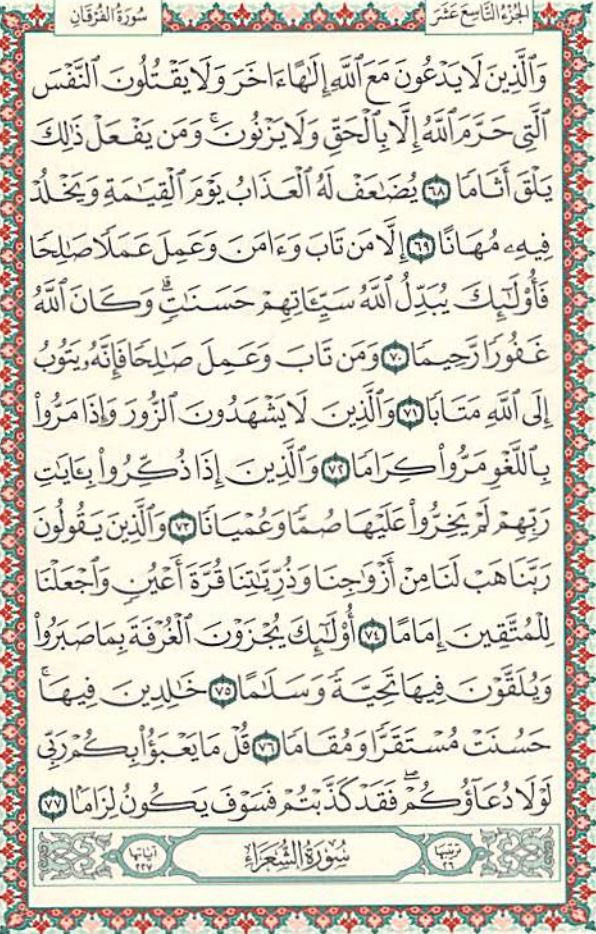 سُورَةُ الفُرْقَانِ الجُزْءُ التَّاسِعَ عَشَرَ
وَٱلَّذِينَ لَا يَدْعُونَ مَعَ ٱللَّهِ إِلَٰهًا ءَاخَرَ وَلَا يَقْتُلُونَ ٱلنَّفْسَ
ٱلَّتِى حَرَّمَ ٱللَّهُ إِلَّا بِٱلْحَقِّ وَلَا يَزْنُونَ ۚ وَمَن يَفْعَلْ ذَٰلِكَ
يَلْقَ أَثَامًا ٦٨ يُضَٰعَفْ لَهُ ٱلْعَذَابُ يَوْمَ ٱلْقِيَٰمَةِ وَيَخْلُدْ
فِيهِۦ مُهَانًا ٦٩ إِلَّا مَن تَابَ وَءَامَنَ وَعَمِلَ عَمَلًا صَٰلِحًا
فَأُو۟لَٰٓئِكَ يُبَدِّلُ ٱللَّهُ سَيِّـَٔاتِهِمْ حَسَنَٰتٍ ۗ وَكَانَ ٱللَّهُ
غَفُورًا رَّحِيمًا ٧٠ وَمَن تَابَ وَعَمِلَ صَٰلِحًا فَإِنَّهُۥ يَتُوبُ
إِلَى ٱللَّهِ مَتَابًا ٧١ وَٱلَّذِينَ لَا يَشْهَدُونَ ٱلزُّورَ وَإِذَا مَرُّوا۟
بِٱللَّغْوِ مَرُّوا۟ كِرَامًا ٧٢ وَٱلَّذِينَ إِذَا ذُكِّرُوا۟ بِـَٔايَٰتِ
رَبِّهِمْ لَمْ يَخِرُّوا۟ عَلَيْهَا صُمًّا وَعُمْيَانًا ٧٣ وَٱلَّذِينَ يَقُولُونَ
رَبَّنَا هَبْ لَنَا مِنْ أَزْوَٰجِنَا وَذُرِّيَّٰتِنَا قُرَّةَ أَعْيُنٍ وَٱجْعَلْنَا
لِلْمُتَّقِينَ إِمَامًا ٧٤ أُو۟لَٰٓئِكَ يُجْزَوْنَ ٱلْغُرْفَةَ بِمَا صَبَرُوا۟
وَيُلَقَّوْنَ فِيهَا تَحِيَّةً وَسَلَٰمًا ٧٥ خَٰلِدِينَ فِيهَا ۚ
حَسُنَتْ مُسْتَقَرًّا وَمُقَامًا ٧٦ قُلْ مَا يَعْبَؤُا۟ بِكُمْ رَبِّى
لَوْلَا دُعَآؤُكُمْ ۖ فَقَدْ كَذَّبْتُمْ فَسَوْفَ يَكُونُ لِزَامًۢا ٧٧
ترتيبها ٢٦ سُورَةُ الشُّعَرَاءِ آياتها ٢٢٧